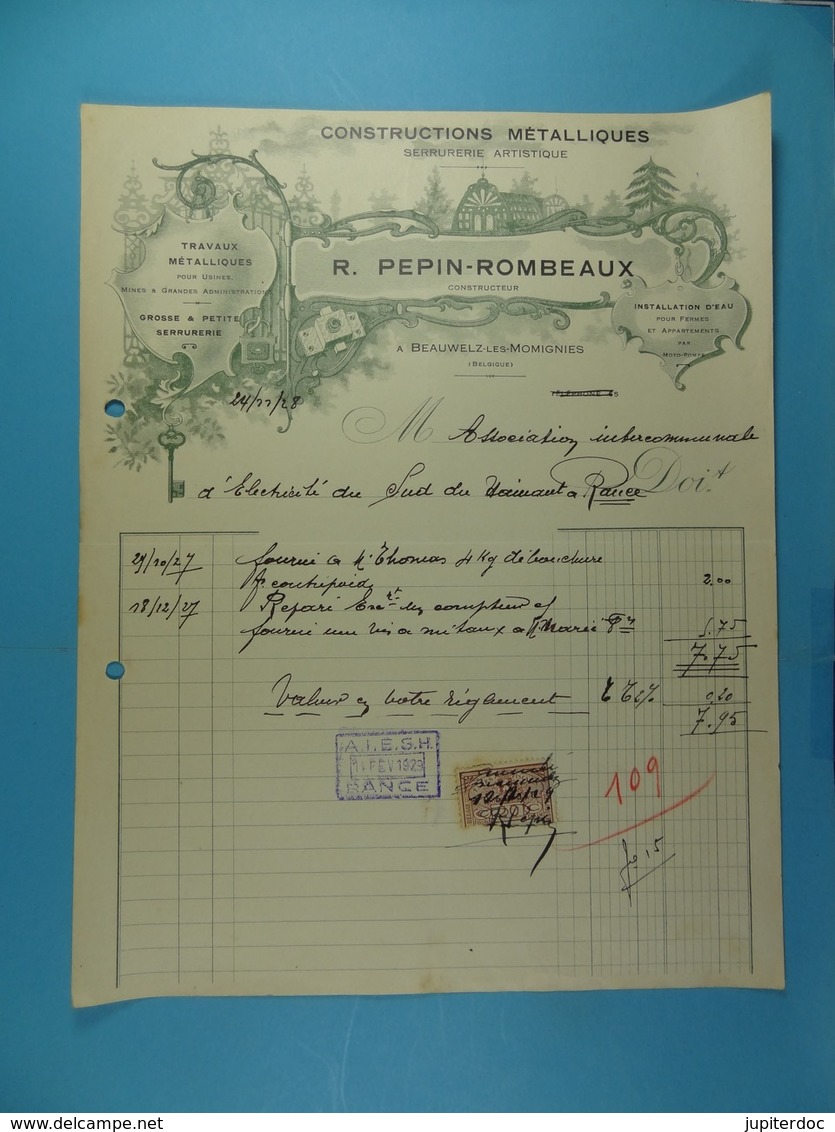 CONSTRUCTIONS MÉTALLIQUES
SERRURERIE ARTISTIQUE
TRAVAUX
MÉTALLIQUES
POUR USINES,
MINES & GRANDES ADMINISTRATIONS
GROSSE & PETITE
SERRURERIE
R. PEPIN-ROMBEAUX
CONSTRUCTEUR
INSTALLATION D'EAU
POUR FERMES
ET APPARTEMENTS
PAR
MOTO-POMPE
A BEAUWELZ-LES-MOMIGNIES
(BELGIQUE)
TÉLÉPHONE 65
24/11/28
M Association intercommunale
d'Electricité du Sud du Hainaut a Rance Doit
29/10/27 fourni a Mr Thomas 4 Kg débouchure
pr contrepoid 2.00
18/12/27 Réparé compteur et
fourni une vis a métaux a 5.75
7.75
Valeur en votre règlement 2% 0.20
7.95
A.I.E.S.H.
14 FEV 1929
RANCE
109
fo 15
jupiterdoc
delcampe.net